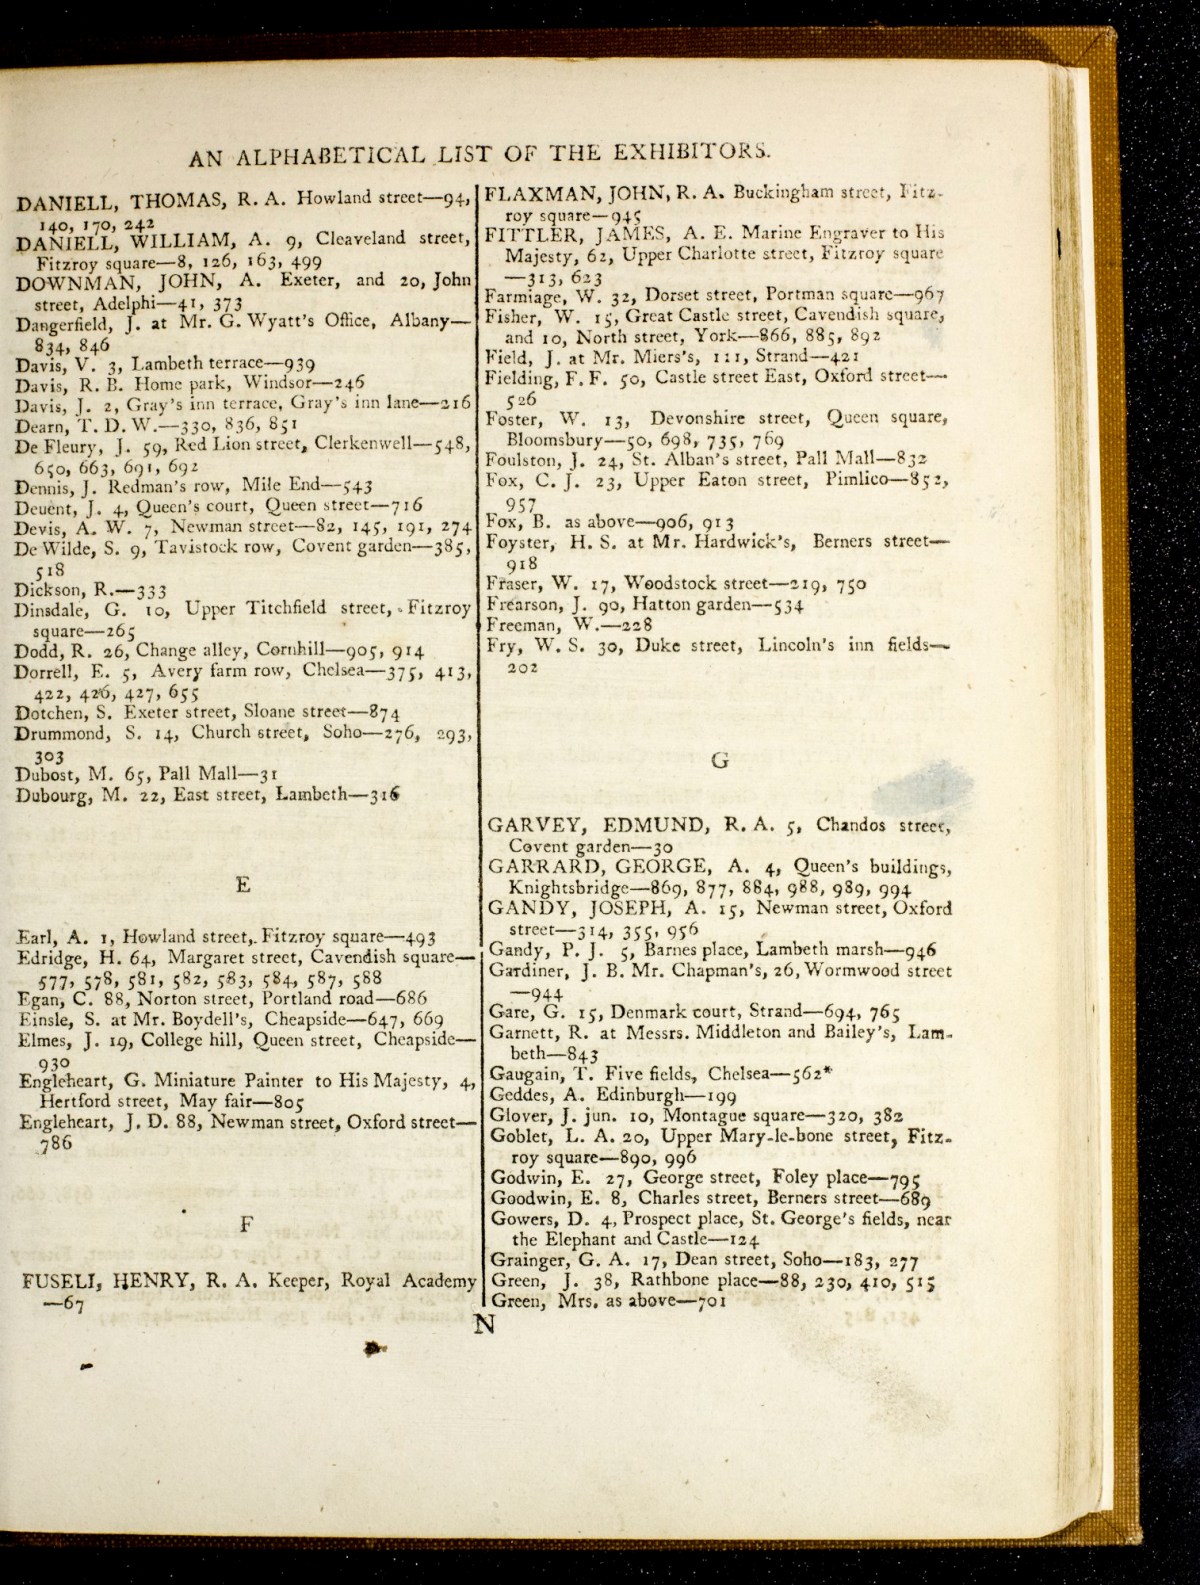 AN ALPHABETICAL LIST OF THE EXHIBITORS.
DANIELL, THOMAS, R. A. Howland street—94,
140, 170, 242
DANIELL, WILLIAM, A. 9, Cleaveland street,
Fitzroy square—8, 126, 163, 499
DOWNMAN, JOHN, A. Exeter, and 20, John
street, Adelphi—41, 373
Dangerfield, J. at Mr. G. Wyatt's Office, Albany—
834, 846
Davis, V. 3, Lambeth terrace—939
Davis, R. B. Home park, Windsor—246
Davis, J. 2, Gray's inn terrace, Gray's inn lane—216
Dearn, T. D. W.—330, 836, 851
De Fleury, J. 59, Red Lion street, Clerkenwell—548,
650, 663, 691, 692
Dennis, J. Redman's row, Mile End—543
Deuent, J. 4, Queen's court, Queen street—716
Devis, A. W. 7, Newman street—82, 145, 191, 274
De Wilde, S. 9, Tavistock row, Covent garden—385,
518
Dickson, R.—333
Dinsdale, G. 10, Upper Titchfield street, Fitzroy
square—265
Dodd, R. 26, Change alley, Cornhill—905, 914
Dorrell, E. 5, Avery farm row, Chelsea—375, 413,
422, 426, 427, 655
Dotchen, S. Exeter street, Sloane street—874
Drummond, S. 14, Church street, Soho—276, 293,
303
Dubost, M. 65, Pall Mall—31
Dubourg, M. 22, East street, Lambeth—316
E
Earl, A. 1, Howland street, Fitzroy square—493
Edridge, H. 64, Margaret street, Cavendish square—
577, 578, 581, 582, 583, 584, 587, 588
Egan, C. 88, Norton street, Portland road—686
Einsle, S. at Mr. Boydell's, Cheapside—647, 669
Elmes, J. 19, College hill, Queen street, Cheapside—
930
Engleheart, G. Miniature Painter to His Majesty, 4,
Hertford street, May fair—805
Engleheart, J. D. 88, Newman street, Oxford street—
786
F
FUSELI, HENRY, R. A. Keeper, Royal Academy
—67
FLAXMAN, JOHN, R. A. Buckingham street, Fitz-
roy square—945
FITTLER, JAMES, A. E. Marine Engraver to His
Majesty, 62, Upper Charlotte street, Fitzroy square
—313, 623
Farmiage, W. 32, Dorset street, Portman square—967
Fisher, W. 15, Great Castle street, Cavendish square,
and 10, North street, York—866, 885, 892
Field, J. at Mr. Miers's, 111, Strand—421
Fielding, F. F. 50, Castle street East, Oxford street—
526
Foster, W. 13, Devonshire street, Queen square,
Bloomsbury—50, 698, 735, 769
Foulston, J. 24, St. Alban's street, Pall Mall—832
Fox, C. J. 23, Upper Eaton street, Pimlico—852,
957
Fox, B. as above—906, 913
Foyster, H. S. at Mr. Hardwick's, Berners street—
918
Fraser, W. 17, Woodstock street—219, 750
Frearson, J. 90, Hatton garden—534
Freeman, W.—228
Fry, W. S. 30, Duke street, Lincoln's inn fields—
202
G
GARVEY, EDMUND, R. A. 5, Chandos street,
Covent garden—30
GARRARD, GEORGE, A. 4, Queen's buildings,
Knightsbridge—869, 877, 884, 988, 989, 994
GANDY, JOSEPH, A. 15, Newman street, Oxford
street—314, 355, 956
Gandy, P. J. 5, Barnes place, Lambeth marsh—946
Gardiner, J. B. Mr. Chapman's, 26, Wormwood street
—944
Gare, G. 15, Denmark court, Strand—694, 765
Garnett, R. at Messrs. Middleton and Bailey's, Lam-
beth—843
Gaugain, T. Five fields, Chelsea—562*
Geddes, A. Edinburgh—199
Glover, J. jun. 10, Montague square—320, 382
Goblet, L. A. 20, Upper Mary-le-bone street, Fitz-
roy square—890, 996
Godwin, E. 27, George street, Foley place—795
Goodwin, E. 8, Charles street, Berners street—689
Gowers, D. 4, Prospect place, St. George's fields, near
the Elephant and Castle—124
Grainger, G. A. 17, Dean street, Soho—183, 277
Green, J. 38, Rathbone place—88, 230, 410, 515
Green, Mrs. as above—701
N